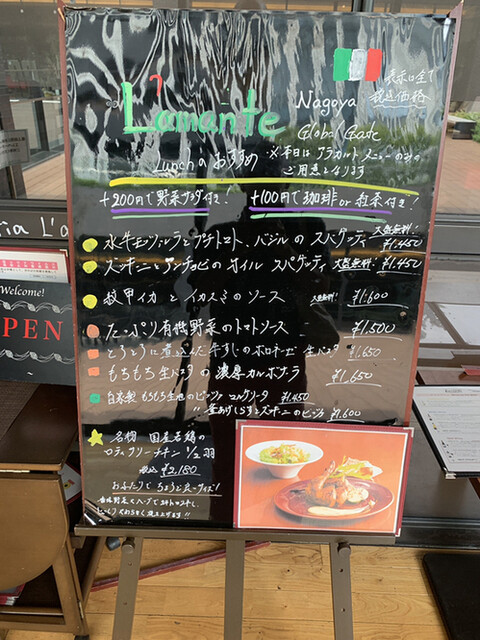 L'amante
Nagoya
Global Gate
表示は全て
税込価格
Lunchのおすすめ
※本日はアラカルトメニューのみの
ご用意となります
+200円で野菜サラダ付き!
+100円で珈琲or紅茶付き!
水牛モッツァレラとプチトマト、バジルのスパゲッティ 大盛無料! ¥1,450
ズッキーニとアンチョビのオイルスパゲッティ 大盛無料! ¥1,450
紋甲イカとイカスミのソース 大盛無料! ¥1,600
たっぷり有機野菜のトマトソース ¥1,500
とろとろに煮込んだ牛すじのボロネーゼ 生パスタ ¥1,650
もちもち生パスタの濃厚カルボナーラ ¥1,650
自家製 もちもち生地のピッツァ マルゲリータ ¥1,450
〃 釜あげしらすとズッキーニのピッツァ ¥1,600
名物 国産若鶏の
ロティサリーチキン 1/2羽
税込 ¥2,180
おふたりでちょうど良いサイズ!
ria L'a
Welcome!
PEN